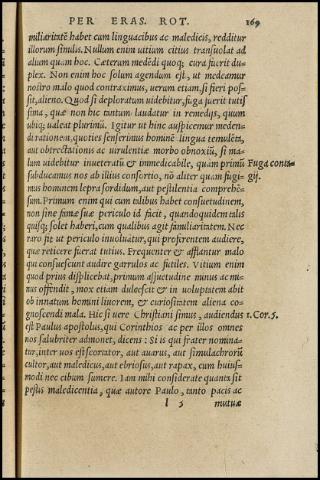 PER ERAS. ROT. 169
miliaritatẽ habet cum linguacibus ac maledicis, redditur
illorum similis. Nullum enim uitium citius transuolat ad
alium quam hoc. Cæterum medẽdi quoq; cura fuerit du-
plex. Non enim hoc solum agendum est, ut medeamur
nostro malo quod contraximus, uerum etiam, si fieri pos-
sit, alieno. Quod si deploratum uidebitur, fuga fuerit tutis
sima, quæ non hic tantum laudatur in remedijs, quum
ubiq; ualeat plurimũ. Igitur ut hinc auspicemur meden-
di rationem, quoties senserimus hominẽ lingua temulẽta,
aut obtrectationis ac uirulentiæ morbo obnoxiũ, si ma-
lum uidebitur inueteratũ & immedicabile, quam primũ Fuga conta-
subducamus nos ab illius consortio, nõ aliter quam fugi- gij.
mus hominem lepra sordidum, aut pestilentia comprehẽ-
sum. Primum enim qui cum talibus habet consuetudinem,
non sine famæ suæ periculo id facit, quandoquidem talis
quisq; solet haberi, cum qualibus agit familiaritatem. Nec
raro fit ut periculo inuoluatur, qui proferentem audiere,
quæ reticere fuerat tutius. Frequenter & afflantur malo
qui consuescunt audire garrulos ac futiles. Vitium enim
quod prius displicebat, primum assuetudine minus ac mi-
nus offendit, mox etiam dulescit & in uoluptatem abit
ob innatum homini liuorem, & curiositatem aliena co-
gnoscendi mala. Hic si uere Christiani sumus, audiendus 1. Cor. 5.
est Paulus apostolus, qui Corinthios ac per illos omnes
nos salubriter admonet, dicens: Si is qui frater nomina-
tur, inter uos est scortator, aut auarus, aut simulachrorũ
cultor, aut maledicus, aut ebriosus, aut rapax, cum huius-
modi nec cibum sumere. Iam mihi considerate quanta sit
pestis maledicentia, quæ autore Paulo, tanto pacis ac
l 5 mutuæ